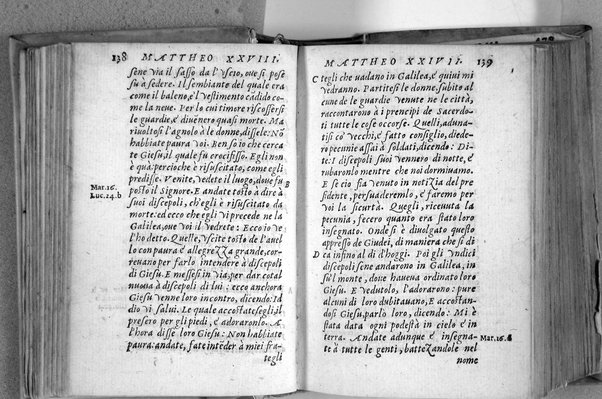 138 MATTHEO XXVIII.
sene via il sasso da l'vscio, oue si pose
su à sedere. Il sembiante del quale era
come il baleno, e'l vestimento cādido co-
me la neue. Per lo cui timore riscossersi
le guardie, e diuēnero quasi morte. Ma
riuoltosi l'agnolo à le donne, dissele: Nō
habbiate paura voi. Ben so io che cerca
te Giesu, il quale fu crocifisso. Egli non
è qua: percioche è risuscitato, come egli
predisse. Venite, vedete il luogo, doue fu
Mar.16. posto il Signore. E andate tosto à dire à B
Luc.24.b suoi discepoli, ch'egli è risuscitato da
morte: ed ecco che egli vi precede ne la
Galilea, oue voi il vedrete: Ecco io ve
l'ho detto. Quelle, vscite tosto de l'auel
lo con paura e allegrezza grande, cor-
reuano per farlo intendere à discepoli
di Giesu. E messesi in via, per dar cotal
nuoua à discepoli di lui: ecco anchora
Giesu venne loro incontro, dicendo: Id
dio vi salui. Le quale accostatesegli, il
presero per gli piedi, e adoraronlo. A
l'hora disse loro Giesu: Non habbiate
paura: andate, fate intēder à miei fra-
tegli
MATTHEO XXIVII. 139
C tegli che uadano in Galilea, e quiui mi
vedranno. Partitesi le donne, subito al
cune de le guardie venute ne le città,
raccontarono à i prencipi de Sacerdo-
ti tutte le cose occorse. Quelli, aduna-
tisi co' vecchi, e fatto consiglio, diede-
ro pecunie assai à soldati, dicendo: Di-
te: I discepoli suoi vennero di notte, e
rubaronlo mentre che noi dormiuamo.
E se cio sia venuto in notizia del pre-
sidente, persuaderemlo, e faremo per
voi la sicurtà. Quegli, riceuuta la
pecunia, fecero quanto era stato loro
insegnato. Onde si è diuolgato questo
appresso de Giudei, di maniera che si di
D ca infino al dì d'hoggi. Poi gli vndici
discepoli sene andarono in Galilea, in
su'l monte, doue haueua ordinato loro
Giesu. E vedutolo, l'adorarono: pure
alcuni di loro dubitauano, E accostan-
dosi Giesu, parlò loro, dicendo: Mi è
stata data ogni podestà in cielo e in
terra. Andate adunque e insegna- Mar.16.
te à tutte le genti, battezandole nel
nome